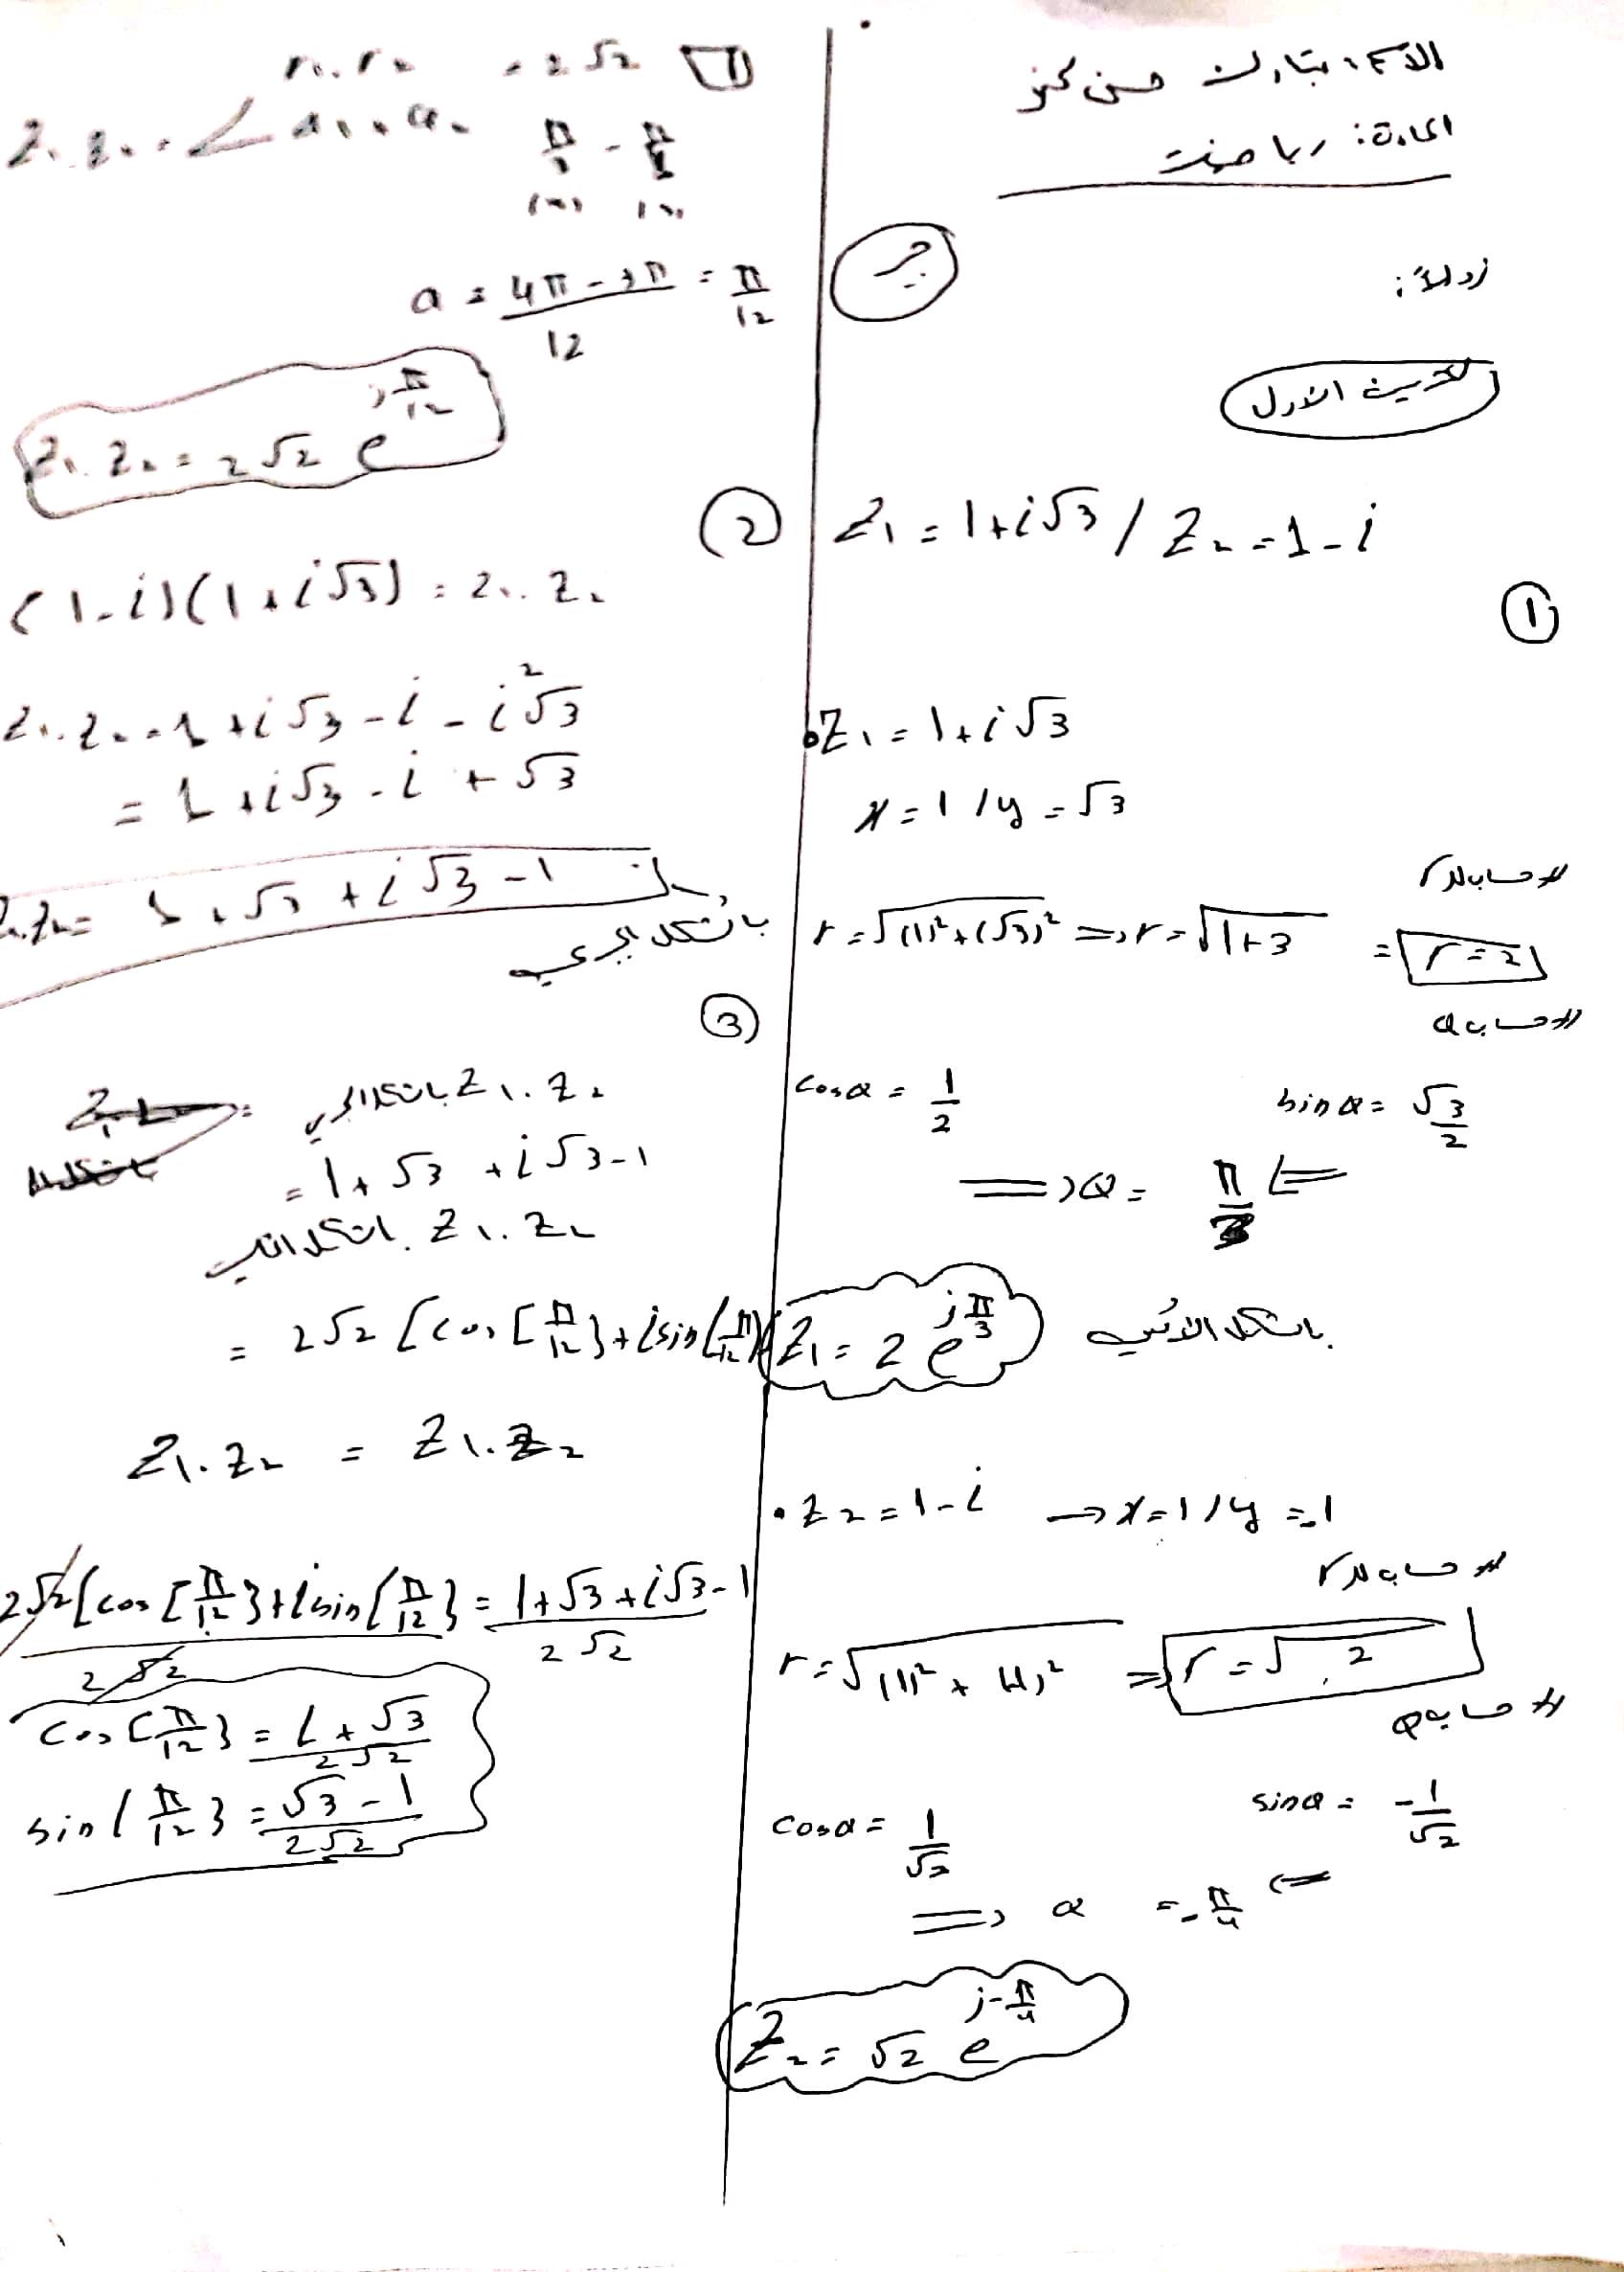 الاسم: تبارك حسن
المادة: رياضيات
أولاً:
التمرين الأول
Z₁ = 1+i√3 / Z₂ = 1-i
①
• Z₁ = 1+i√3
x = 1 / y = √3
// حساب r
r = √(1)²+(√3)² => r = √1+3 = r = 2
// حساب θ
cos θ = 1/2 sin θ = √3/2
=> θ = π/3 <=
Z₁ = 2 e^(iπ/3) بالشكل الأسي
• Z₂ = 1-i → x = 1 / y = -1
// حساب r
r = √(1)²+(-1)² => r = √2
// حساب θ
cos θ = 1/√2 sin θ = -1/√2
=> θ = -π/4 <=
Z₂ = √2 e^(i-π/4)
r₁.r₂ = 2√2
π/3 - π/4
θ = 4π-3π/12 = π/12
Z₁.Z₂ = 2√2 e^(iπ/12)
②
(1-i)(1+i√3) = Z₁.Z₂
Z₁.Z₂ = 1+i√3-i-i²√3
= 1+i√3-i+√3
Z₁.Z₂ = 1+√3+i√3-1
بالشكل الجبري
③
Z₁.Z₂ بالشكل الجبري
= 1+√3+i√3-1
Z₁.Z₂ بالشكل المثلثي
= 2√2 [cos[π/12]+isin(π/12)
Z₁.Z₂ = Z₁.Z₂
2√2[cos[π/12]+isin(π/12]/2√2 = 1+√3+i√3-1/2√2
cos[π/12] = 1+√3/2√2
sin(π/12] = √3-1/2√2